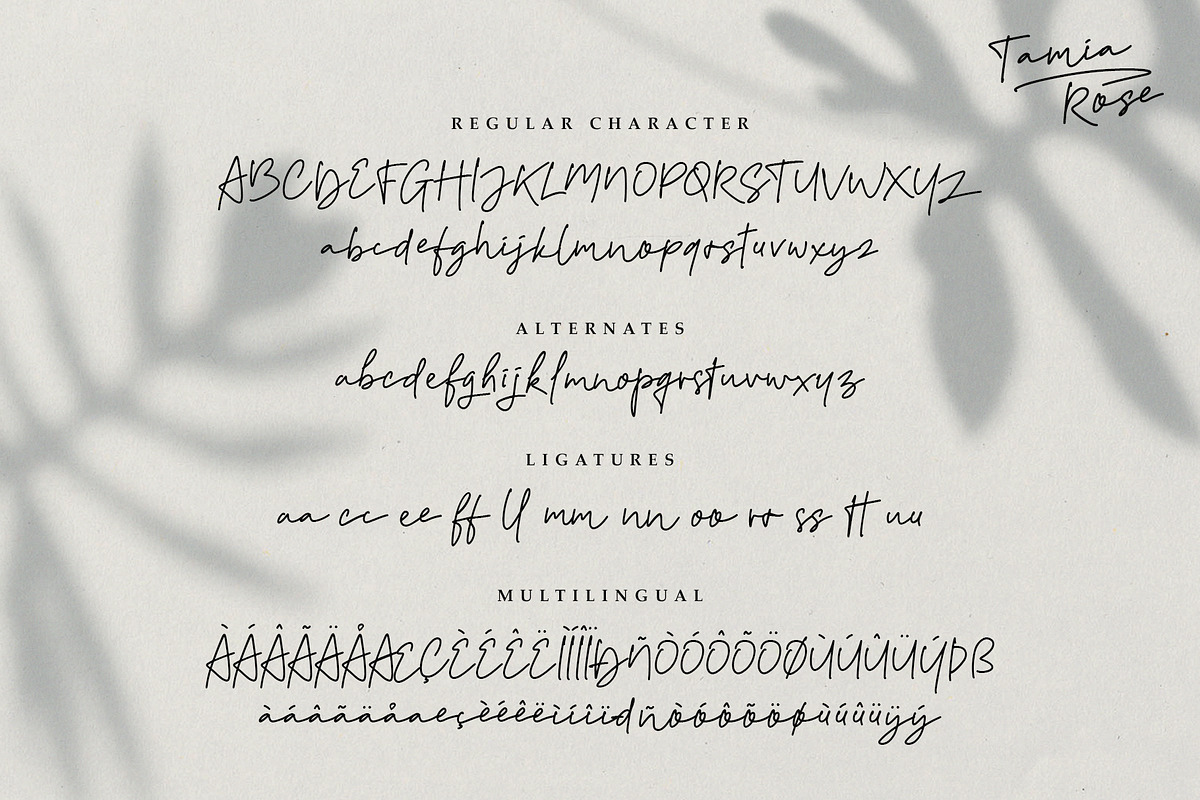 Tamia
Rose
REGULAR CHARACTER
ABCDEFGHIJKLMNOPQRSTUVWXYZ
abcdefghijklmnopqrstuvwxyz
ALTERNATES
abcdefghijklmnopqrstuvwxyz
LIGATURES
aa cc ee ff ll mm nn oo rr ss tt uu
MULTILINGUAL
ÀÁÂÃÄÅÆÇÈÉÊËÌÍÎÏÐÑÒÓÔÕÖØÙÚÛÜÝÞß
àáâãäåæçèéêëìíîïðñòóôõöøùúûüÿý